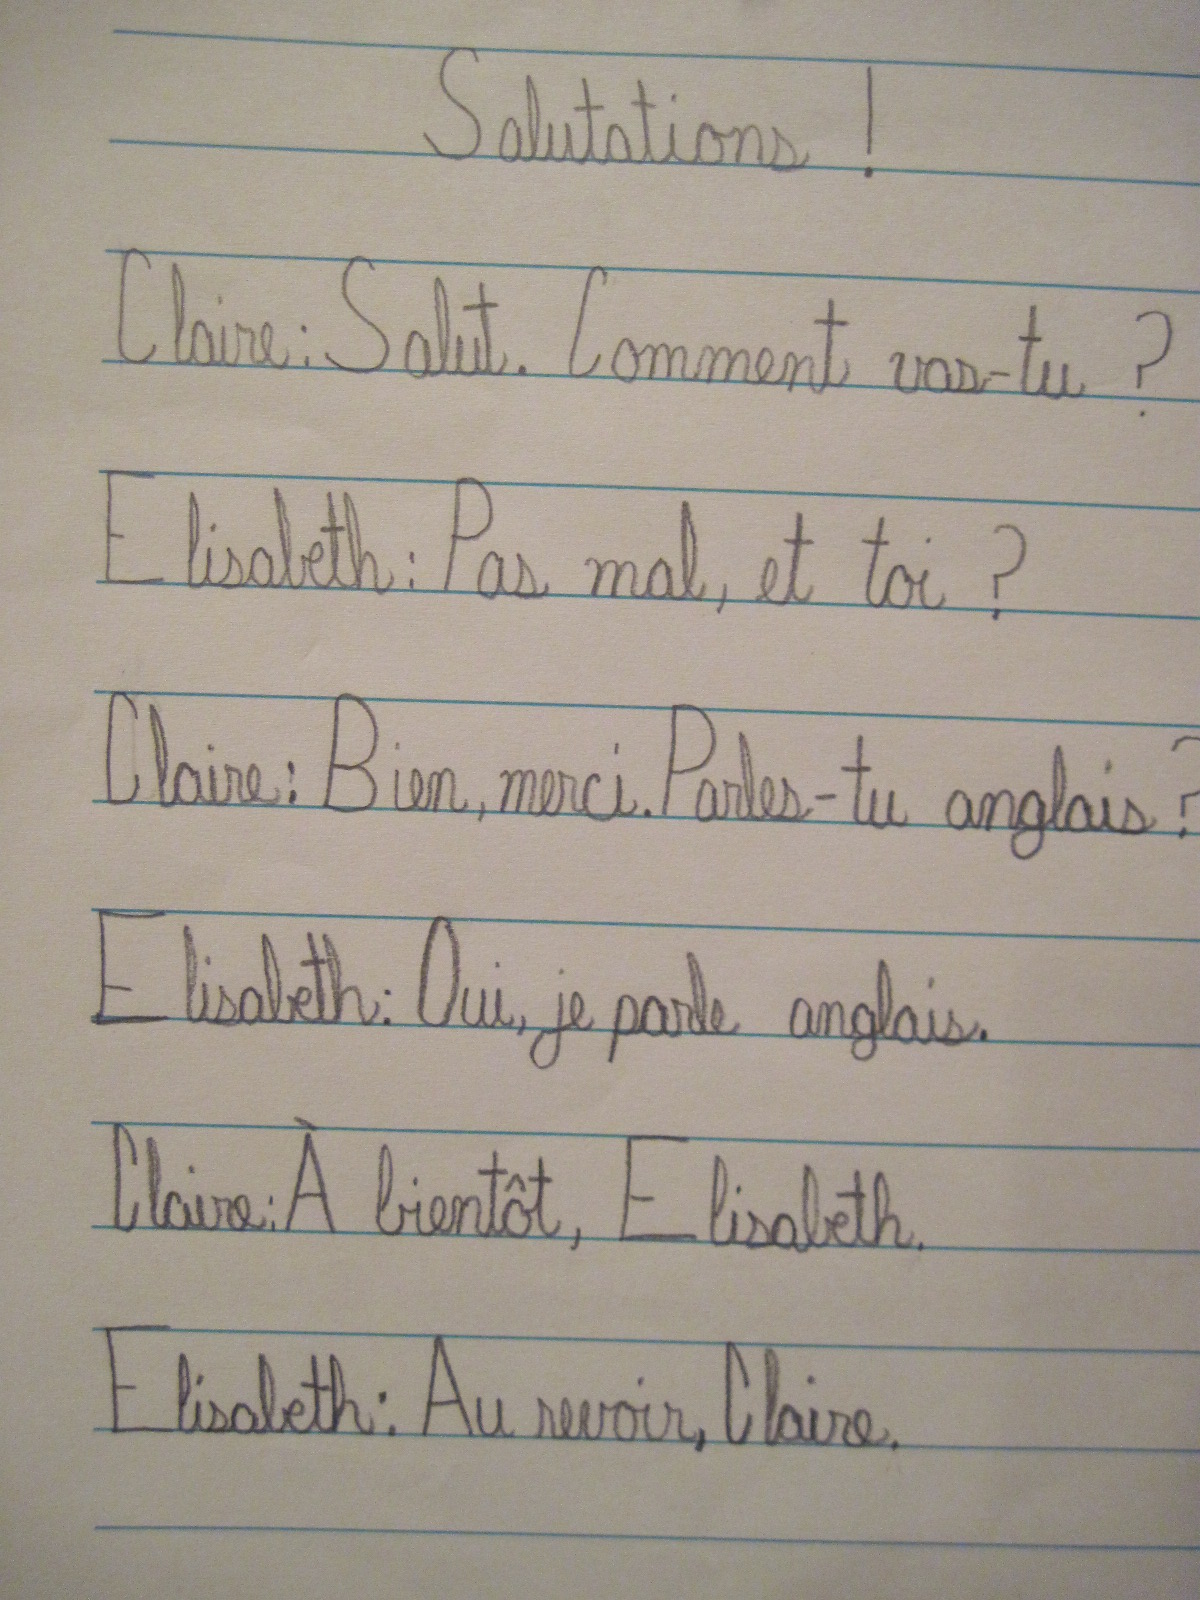 Salutations !
Claire: Salut. Comment vas-tu ?
Elisabeth: Pas mal, et toi ?
Claire: Bien, merci. Parles-tu anglais ?
Elisabeth: Oui, je parle anglais.
Claire: À bientôt, Elisabeth.
Elisabeth: Au revoir, Claire.